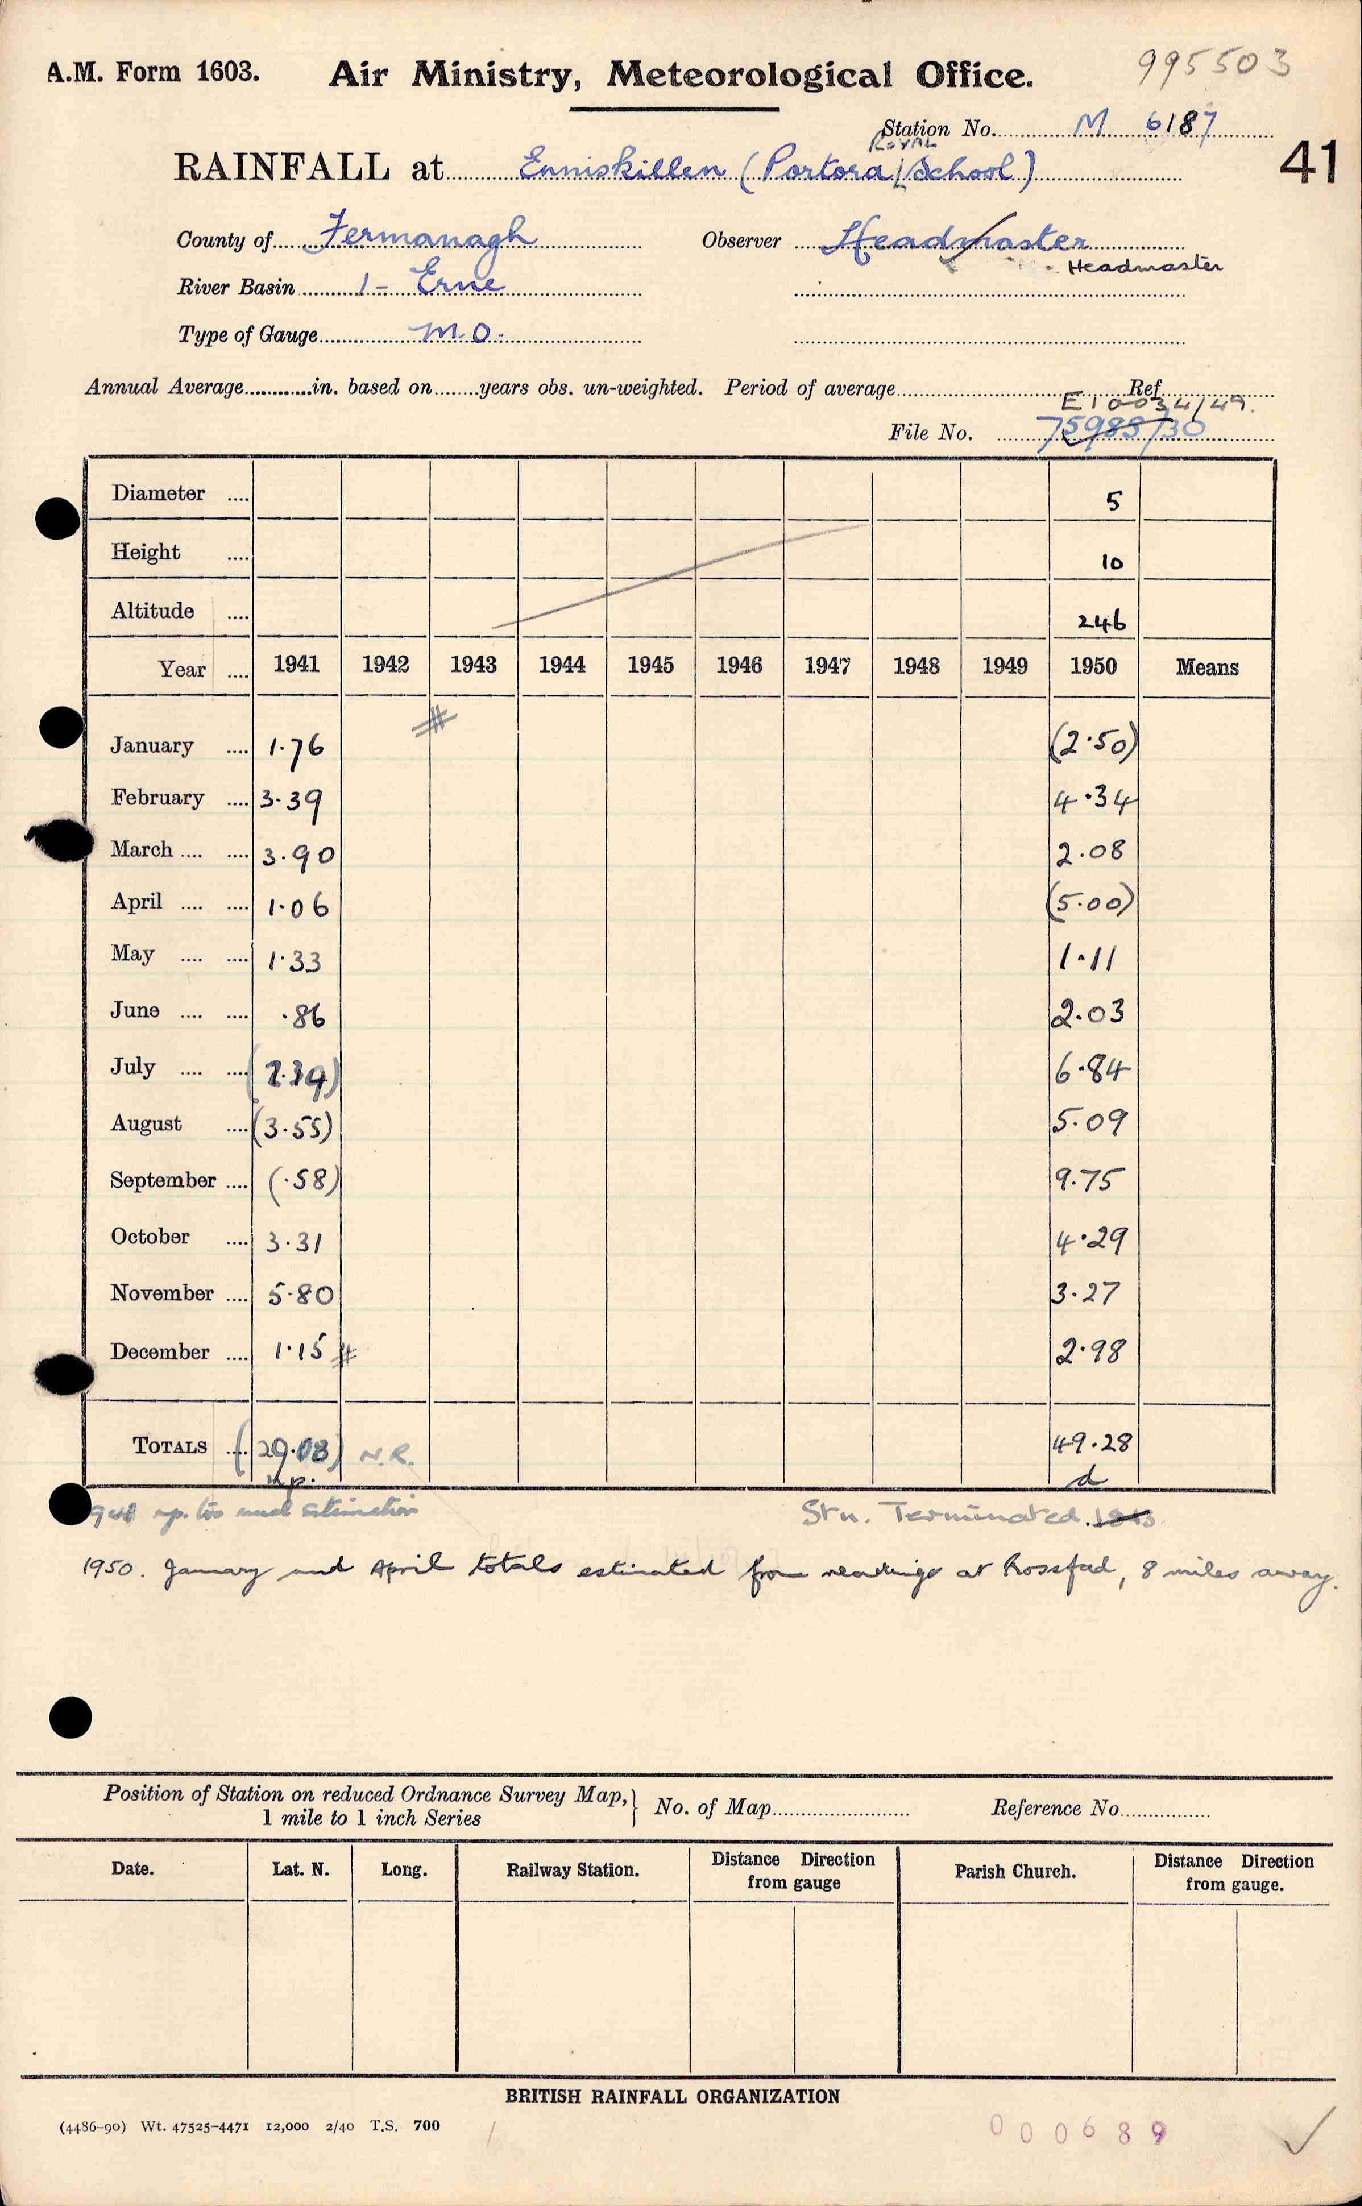 A.M. Form 1603. Air Ministry, Meteorological Office. 995503
Station No. M 6187
41
ROYAL
RAINFALL at Enniskillen (Portora School)
County of Fermanagh Observer Headmaster
Headmaster
River Basin 1 - Erne
Type of Gauge M.O.
Annual Average in. based on years obs. un-weighted. Period of average Ref
E10034/49.
File No. 75985/30
Diameter 5
Height 10
Altitude 246
Year 1941 1942 1943 1944 1945 1946 1947 1948 1949 1950 Means
January 1.76 (2.50)
February 3.39 4.34
March 3.90 2.08
April 1.06 (5.00)
May 1.33 1.11
June .86 2.03
July (2.39) 6.84
August (3.55) 5.09
September (.58) 9.75
October 3.31 4.29
November 5.80 3.27
December 1.15 2.98
TOTALS (29.08) N.R. 49.28
n.p. d
n.p. too much estimation Stn. Terminated.
1950. January and April totals estimated from readings at Rossfad, 8 miles away.
Position of Station on reduced Ordnance Survey Map, 1 mile to 1 inch Series } No. of Map Reference No
Date. Lat. N. Long. Railway Station. Distance Direction from gauge Parish Church. Distance Direction from gauge.
BRITISH RAINFALL ORGANIZATION
(4486-90) Wt. 47525-4471 12,000 2/40 T.S. 700
000689